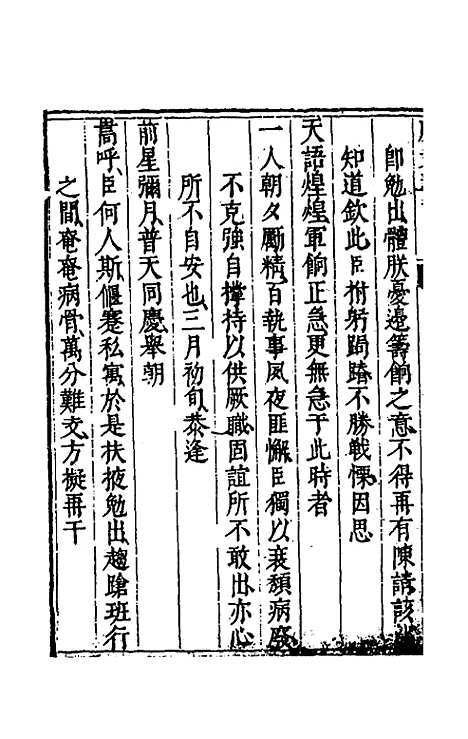 即勉出體朕憂邊籌餉之意不得再有陳請該
知道欽此臣拊躬跼蹐不勝戰慄因思
天語煌煌軍餉正急更無急于此時者
一人朝夕勵精百執事夙夜匪懈臣獨以衰頽病廢
不克強自撐持以供厥職固誼所不敢出亦心
所不自安也三月初旬恭逢
前星彌月普天同慶舉朝
嵩呼臣何人斯偃蹇私寓於是扶掖勉出趨蹌班行
之間奄奄病骨萬分難支方擬再干